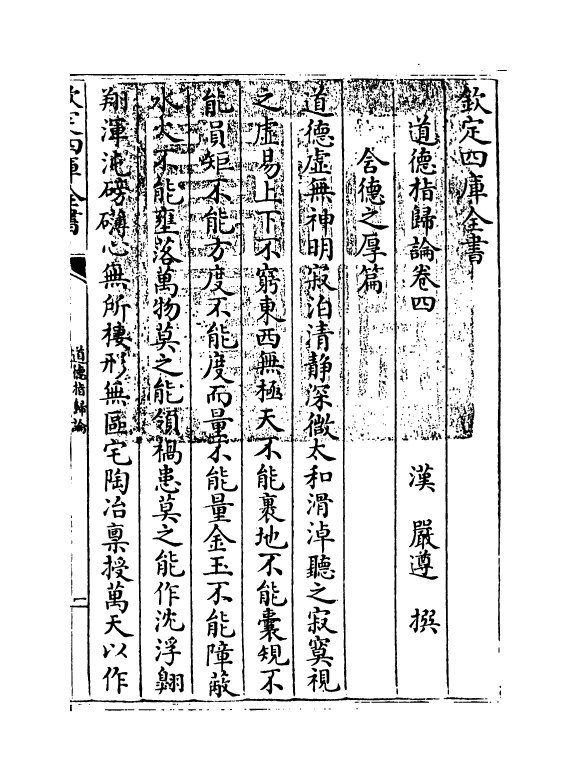 欽定四庫全書
道德指歸論卷四
漢 嚴遵 撰
含德之厚篇
道德虛無神明寂泊清靜深微太和滑淖聽之寂寞視
之虛易上下不窮東西無極天不能裹地不能囊規不
能員矩不能方度不能度而量不能量金玉不能障蔽
水火不能壅落萬物莫之能領禍患莫之能作沈浮翺
翔渾沌磅礴心無所棲形無區宅陶冶稟授萬天以作
欽定四庫全書
道德指歸論
二